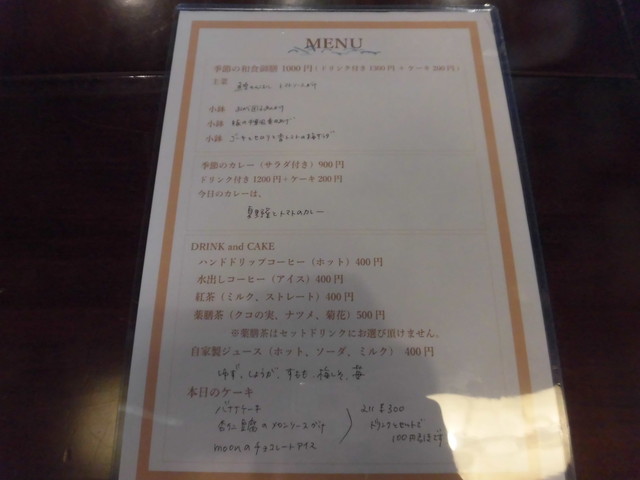 MENU
季節の和食御膳 1000円(ドリンク付き1300円+ケーキ200円)
主菜
小鉢
小鉢
小鉢
季節のカレー(サラダ付き)900円
ドリンク付き1200円+ケーキ200円
今日のカレーは、
夏野菜とトマトのカレー
DRINK and CAKE
ハンドドリップコーヒー(ホット)400円
水出しコーヒー(アイス)400円
紅茶(ミルク、ストレート)400円
薬膳茶(クコの実、ナツメ、菊花)500円
※薬膳茶はセットドリンクにお選び頂けません。
自家製ジュース(ホット、ソーダ、ミルク) 400円
ゆず、しょうが、すもも、梅しそ、苺
本日のケーキ
バナナケーキ
杏仁豆腐のメロンソースがけ
moonのチョコレートアイス
300
ドリンクとセットで
100円引き